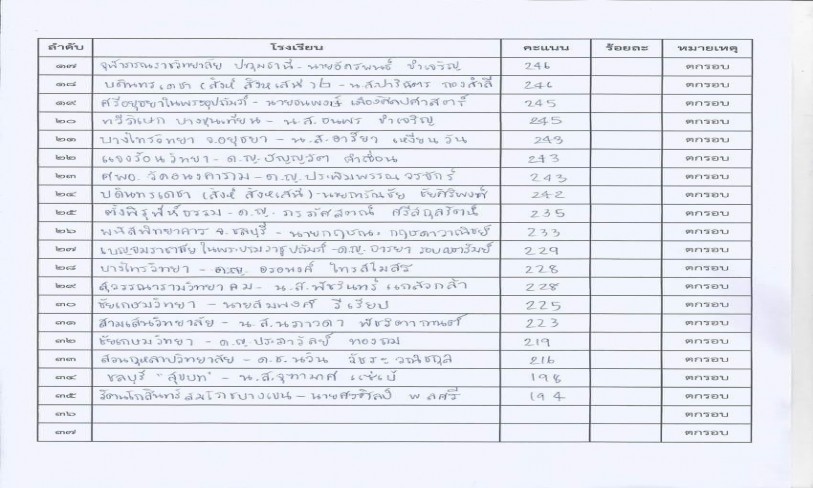 ลำดับ โรงเรียน คะแนน ร้อยละ หมายเหตุ
๑๗ จุฬาภรณราชวิทยาลัย ปทุมธานี - นาย ขำเจริญ 246 ตกรอบ
๑๘ บดินทรเดชา (สิงห์ สิงหเสนี) ๒ - น.ส.ปาริฉัตร ทองสำลี 246 ตกรอบ
๑๙ ศรีอยุธยาในพระอุปถัมภ์ - นายธนพงษ์ 245 ตกรอบ
๒๐ ทวีธาภิเศก บางขุนเทียน - น.ส.ธนพร ขำเจริญ 245 ตกรอบ
๒๑ บางไทรวิทยา จ.อยุธยา - น.ส.อารียา เหรียนวัน 243 ตกรอบ
๒๒ แจงร้อนวิทยา - ด.ญ. 243 ตกรอบ
๒๓ ศพอ. วัดอนงคาราม - ด.ญ. 243 ตกรอบ
๒๔ บดินทรเดชา (สิงห์ สิงหเสนี) - นาย ชัยศิริพงษ์ 242 ตกรอบ
๒๕ ตั้งพิรุฬห์ธรรม - ด.ญ. 235 ตกรอบ
๒๖ พนัสพิทยาคาร จ.ชลบุรี - นายกฤษณะ กฤษดาวาณิชย์ 233 ตกรอบ
๒๗ เบญจมราชาลัย ในพระบรมราชูปถัมภ์ - ด.ญ.อารยา 229 ตกรอบ
๒๘ บางไทรวิทยา - ด.ญ. อรอนงค์ 228 ตกรอบ
๒๙ สุวรรณารามวิทยาคม - น.ส.พัชรินทร์ แกล้วกล้า 228 ตกรอบ
๓๐ ชัยเกษมวิทยา - นายสมพงศ์ รีเรียบ 225 ตกรอบ
๓๑ สามเสนวิทยาลัย - น.ส.นภาวดา 223 ตกรอบ
๓๒ ชัยเกษมวิทยา - ด.ญ.ประภาวัลย์ 219 ตกรอบ
๓๓ สวนกุหลาบวิทยาลัย - ด.ช.นวิน วัชระวณิชกุล 216 ตกรอบ
๓๔ ชลบุรี "สุขบท" - น.ส.จุฑามาศ 198 ตกรอบ
๓๕ รัตนโกสินทร์สมโภชบางเขน - นายศรศิลป์ พลศรี 194 ตกรอบ
๓๖ ตกรอบ
๓๗ ตกรอบ